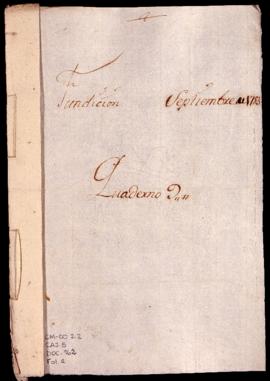 Fundicion Septiembre de 1783
Quaderno 2,,
CM-OO 2:2
CAJ. 5
DOC. 162
Fol. 2